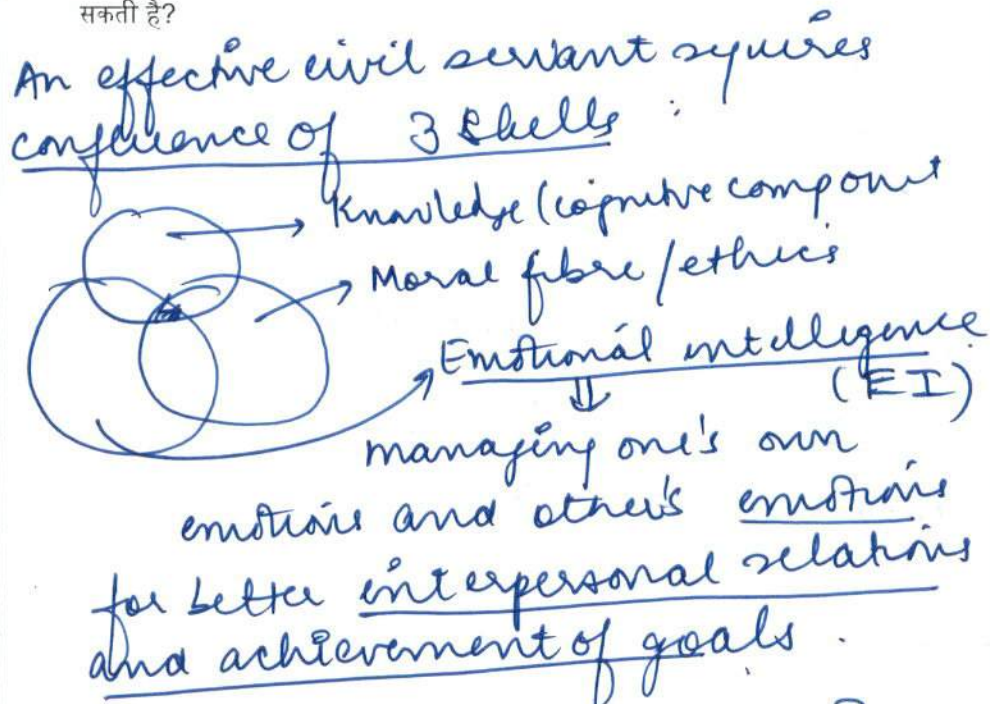 सकती है?
An effective civil servant requires
confluence of 3 skills :
Knowledge (cognitive component
Moral fibre / ethics
Emotional intelligence
(EI)
⇓
managing one's own
emotions and other's emotions
for better interpersonal relations
and achievement of goals.